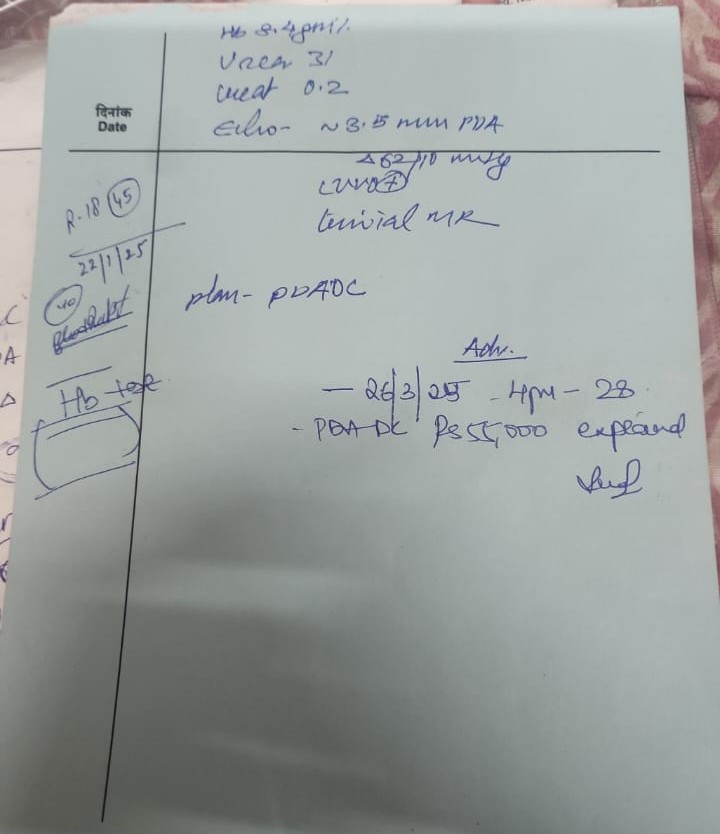 Hb 8.4 gm%
Urea 31
creat 0.2
दिनांक
Date
Echo- ~3.5 mm PDA
62/10 mmHg
trivial MR
R.18 45
22/1/25
40
plan- PDADC
Hb test
Adv.
- 26/3/25 - 4pm - 28
- PDA DC Rs 55,000 explained
C
A
Δ